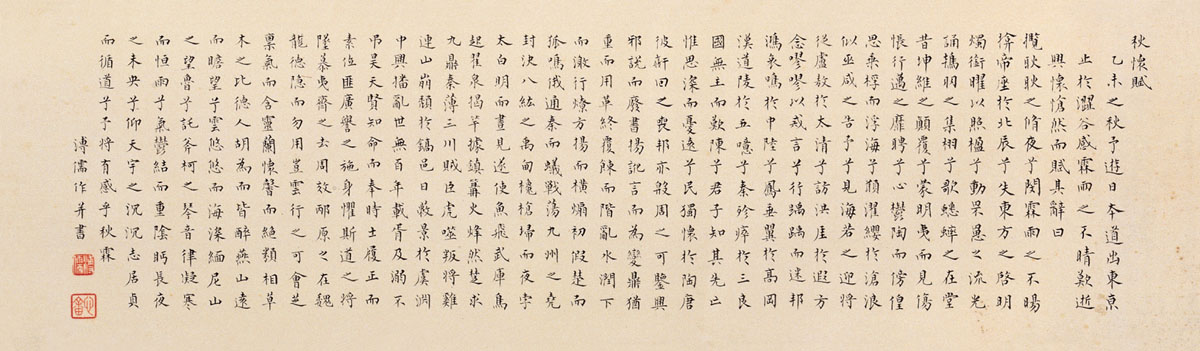 秋懷賦
乙未之秋予遊日本道出東京
止於澀谷感霖雨之不晴歎逝
興懷愴然而賦其辭曰
攬耿耿之脩夜兮閔霖雨之不暘
揜帝座於北辰兮失東方之啓明
燭銜曜以照楹兮動罘罳之流光
誦鴇羽之集栩兮歌蟋蟀之在堂
昔坤維之顛覆兮蒙明夷而見傷
悵行邁之靡騁兮心鬱陶而傍徨
思乘桴而浮海兮願濯纓於滄浪
似巫咸之告予兮見海若之迎將
從盧敖於太清兮訪洪崖於遐方
念嘐嘐以戒言兮行踽踽而迷邦
鴻哀鳴於中陸兮鳳垂翼於高岡
漢道陵於五噫兮秦殄瘁於三良
國無主而歎陳兮君子知其先亡
惟思深而憂遠兮民獨懷於陶唐
彼回之喪邦亦殷周之可鑒興
邪說而廢書揚訛言而為變鼎猶
重而用革終覆餗而階亂水潤下
而行燎方揚而橫煽初假楚而
孤鳴俄通秦而蟻戰蕩九州之堯
封泱八紘之禹甸欃槍埽而夜字
太白明而晝見遂使魚飛武庫烏
起翟泉揭竿據鎮篝火烽然楚求
九鼎秦薄三川賊臣虎噬叛將雞
連山崩頹於鎬邑日斂景於虞淵
中興亂世無百年載胥及溺不
弔昊天賢知命而奉時士履正而
素位匪廣譽之施身懼斯道之將
墜慕夷齊之去周效邴原之在魏
龍德隱而勿用豈雲行之可會芝
稟氣而含靈蘭懷馨而絕類相草
木之比德人胡為而皆醉燕山遠
而瞻望兮雲悠悠而海深緬尼山
之望魯兮託斧柯之琴音律凝寒
而恒雨兮氣鬱結而重陰眄長夜
之未央兮仰天宇之沉沉志居貞
而循道兮予將有感乎秋霖
溥儒作并書